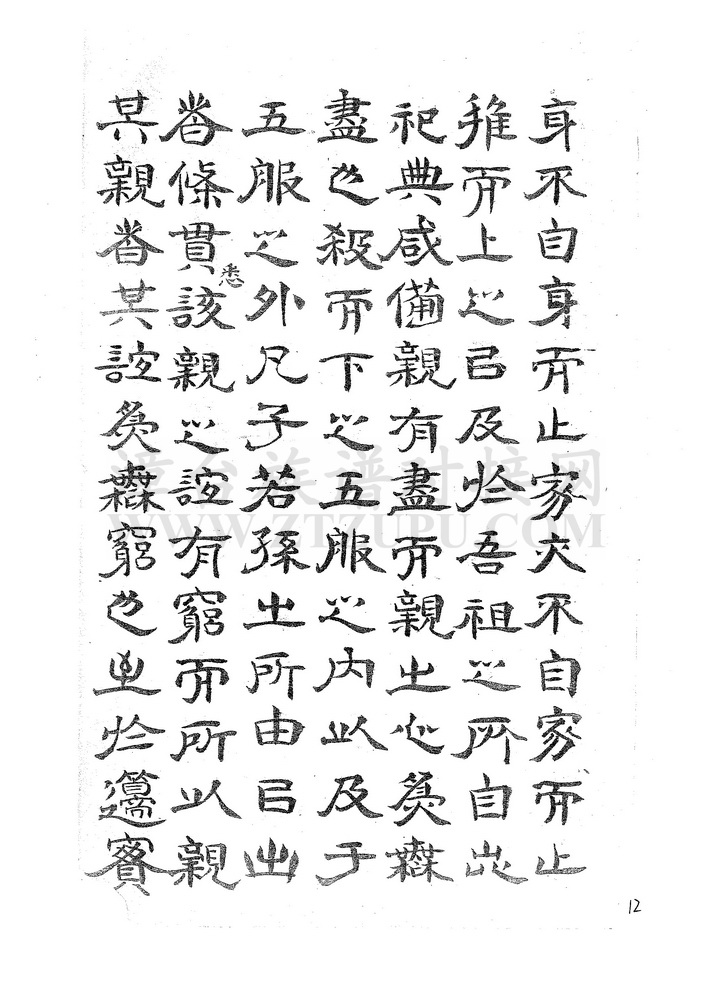 身不自身而止家亦不自家而止
推而上之已及於吾祖之所自出
祀典咸備親有盡而親之心為無
盡也殺而下之五服之内以及于
五服之外凡子若孫之所由已出
者條貫悉該親之誼有窮而所以親
其親者其誼為無窮也至於賓
漳台族谱对接网
WWW.ZTZUPU.COM
12